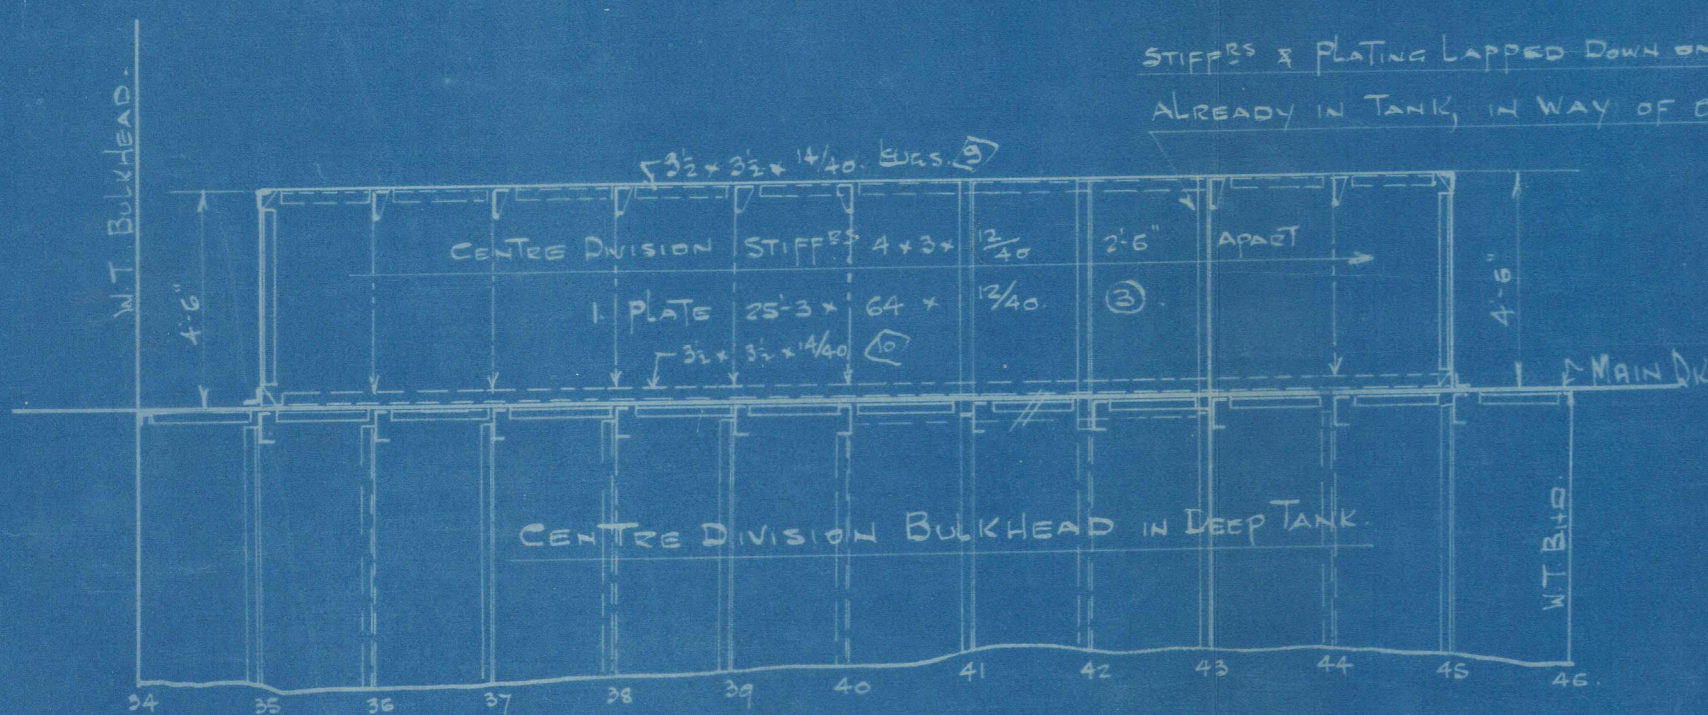 STIFFRS & PLATING LAPPED DOWN ON
ALREADY IN TANK, IN WAY OF
W.T. BULKHEAD.
3½ × 3½ × 14/40. LUGS. 9
CENTRE DIVISION STIFFRS 4 × 3 × 12/40 2'-6" APART
4'-6"
4'-6"
1. PLATE 25'-3 × 64 × 12/40. 3
3½ × 3½ × 14/40 10
MAIN DK
CENTRE DIVISION BULKHEAD IN DEEP TANK.
W.T. BHD.
34 35 36 37 38 39 40 41 42 43 44 45 46.